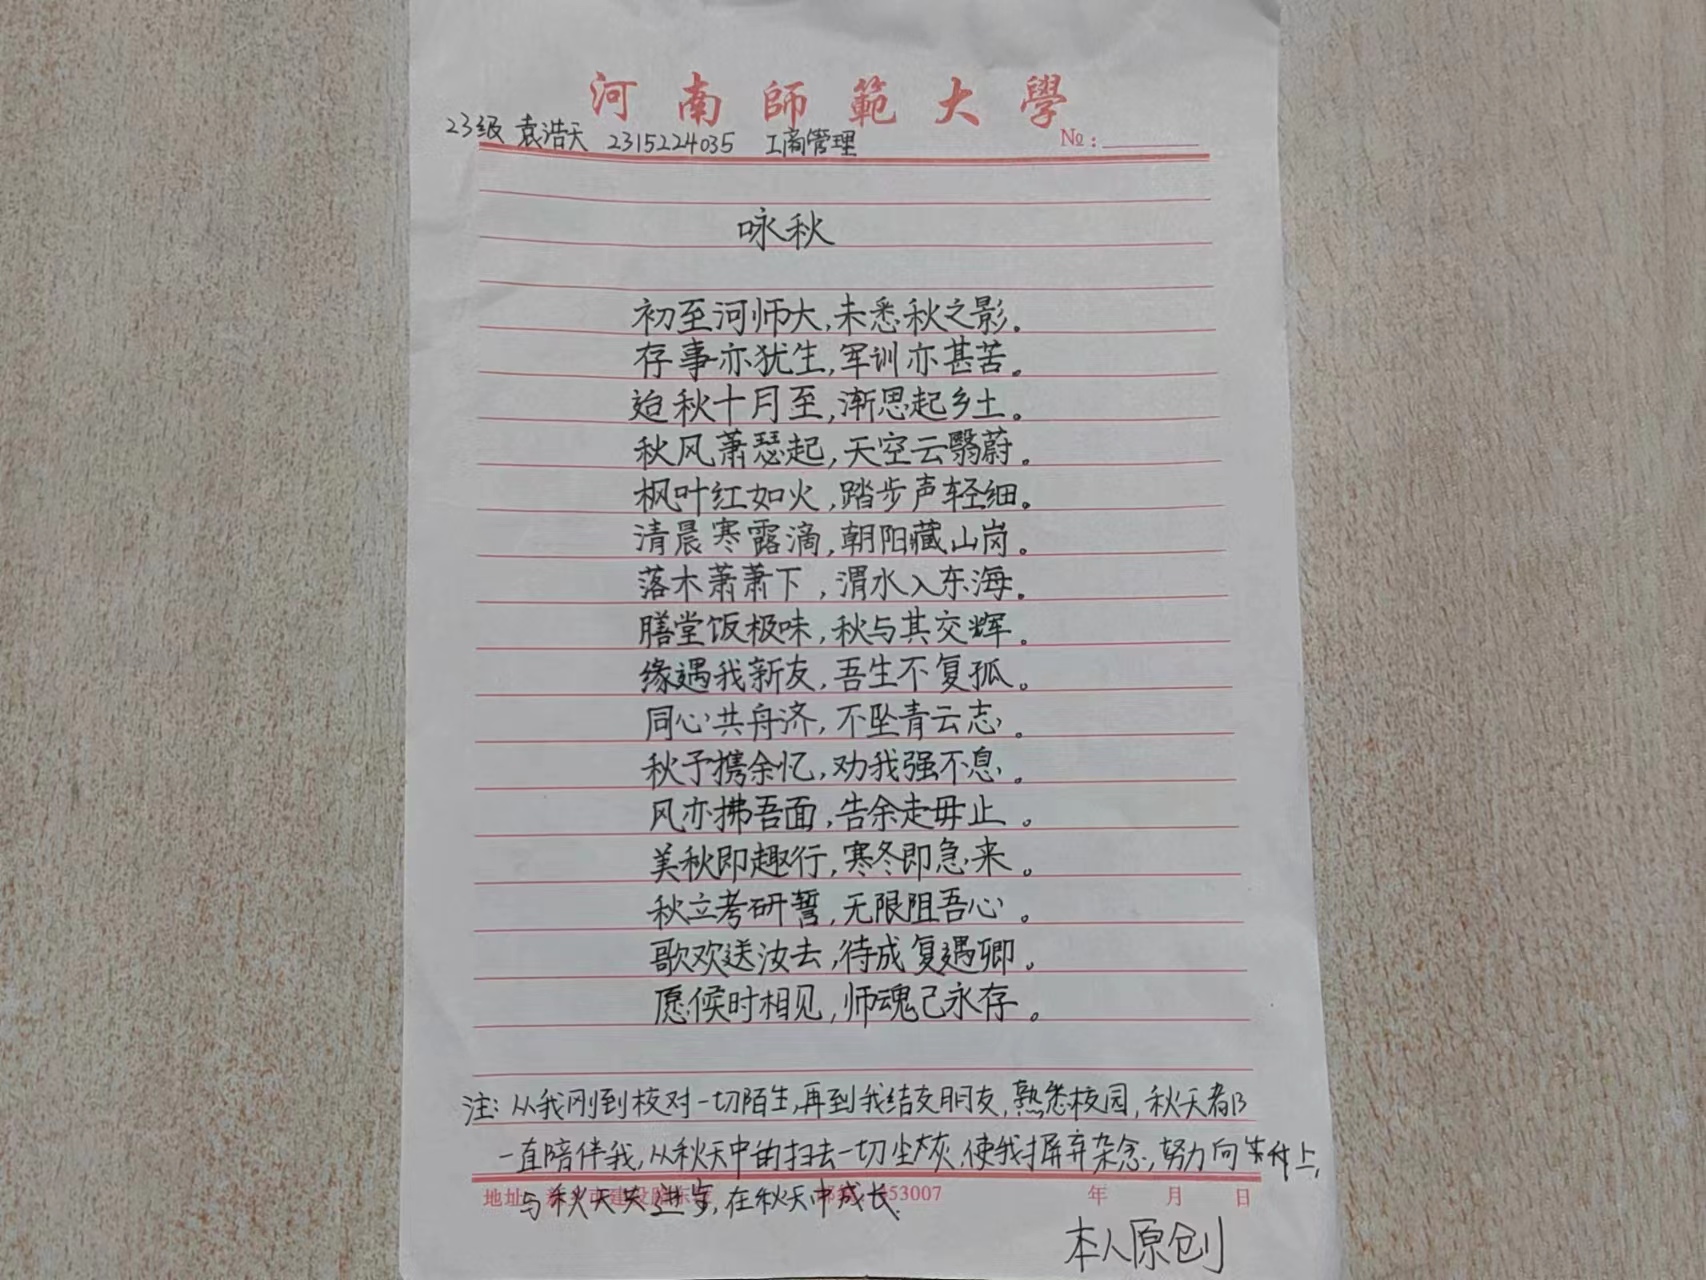 河南師範大學
23级 袁浩天 2315224035 工商管理
№:
咏秋
初至河师大,未悉秋之影。
存事亦犹生,军训亦甚苦。
迨秋十月至,渐思起乡土。
秋风萧瑟起,天空云翳蔚。
枫叶红如火,踏步声轻细。
清晨寒露滴,朝阳藏山岗。
落木萧萧下,渭水入东海。
膳堂饭极味,秋与其交辉。
缘遇我新友,吾生不复孤。
同心共舟济,不坠青云志。
秋予携余忆,劝我强不息。
风亦拂吾面,告余走毋止。
美秋即趣行,寒冬即急来。
秋立考研誓,无限阻吾心。
歌欢送汝去,待成复遇卿。
愿候时相见,师魂己永存。
注:从我刚到校对一切陌生,再到我结交朋友,熟悉校园,秋天都
一直陪伴我,从秋天中的扫去一切尘灰,使我摒弃杂念,努力向上,
与秋天共进步,在秋天中成长.
地址 53007 年 月 日
本人原创